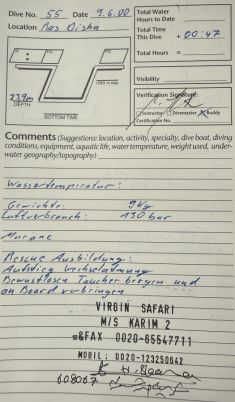 Dive No. 55 Date 9.6.00
Location Ras Disha
Total Water
Hours to Date
Total Time
This Dive + 00:47
Total Hours =
Visibility
Verification Signature:
Instructor Divemaster Buddy
Certification No.
23,9m
DEPTH
BOTTOM TIME
Comments (Suggestions: location, activity, specialty, dive boat, diving
conditions, equipment, aquatic life, water temperature, weight used, under-
water geography/topography)
Wassertemperatur:
Gewichte: 9kg
Luftverbrauch: 130 bar
Muräne
Rescue Ausbildung:
Aufstieg Wechselatmung
Bewusstlosen Taucher bergen und
an Board verbringen
VIRGIN SAFARI
M/S KARIM 2
☎&FAX 0020-65547711
MOBIL: 0020-123250642
608007